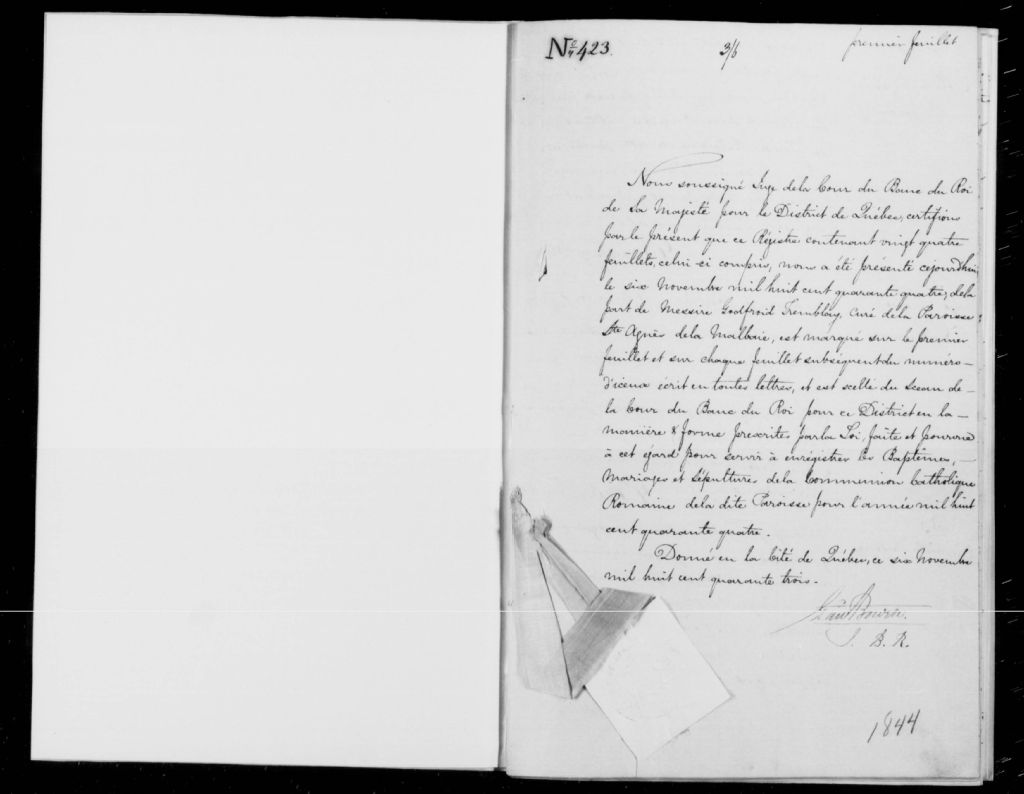 No 423. 3/6 premier feuillet
Nous soussigné Juge de la Cour du Banc du Roi
de Sa Majesté pour le District de Québec, certifions
par le présent que ce Régistre contenant vingt quatre
feuillets, celui-ci compris, nous a été présenté cejourdhui
le six Novembre mil huit cent quarante quatre, de la
part de Messire Godfroid Tremblay, Curé de la Paroisse
Ste Agnès de la Malbaie, est marqué sur le premier
feuillet et sur chaque feuillet subséquent du numéro
d'iceux écrit en toutes lettres, et est scellé du Sceau de
la Cour du Banc du Roi pour ce District en la
manière & forme prescrites par la Loi, faite et pourvue
à cet egard pour servir à enrégistrer les Baptêmes,
Mariages et Sépultures de la Communion Catholique
Romaine de la dite Paroisse pour l'année mil huit
cent quarante quatre.
Donné en la Cité de Québec, ce six Novembre
mil huit cent quarante trois.
J. B. R.
1844